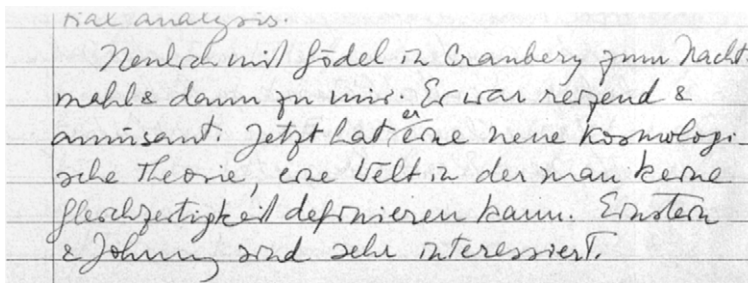 rial analysis.
Neulich mit Gödel in Cranbery zum Nacht-
mahl & dann zu mir. Er war reizend &
amüsant. Jetzt hat er eine neue kosmologi-
sche Theorie, eine Welt in der man keine
Gleichzeitigkeit definieren kann. Einstein
& Johnny sind sehr interessiert.